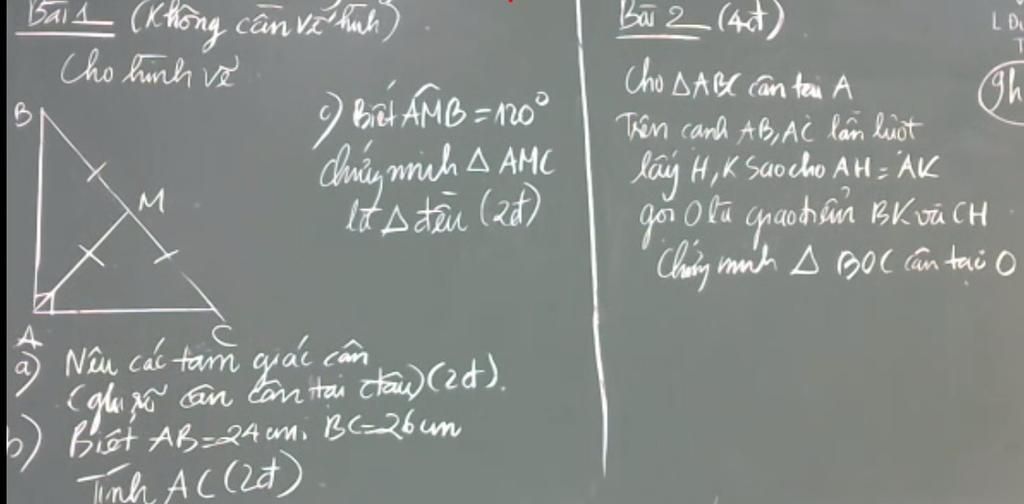 Bài 1 (Không cần vẽ hình)
Cho hình vẽ
B
M
A
C
c) Biết AMB = 120°
chứng minh △ AMC
là △ đều (2đ)
a) Nêu các tam giác cân
(ghi rõ cân tại đâu) (2đ).
b) Biết AB=24cm; BC=26cm
Tính AC (2đ)
Bài 2 (4đ)
Cho △ABC cân tại A
Trên cạnh AB, AC lần lượt
lấy H, K sao cho AH = AK
gọi O là giao điểm BK và CH
Chứng minh △ BOC cân tại O
gh